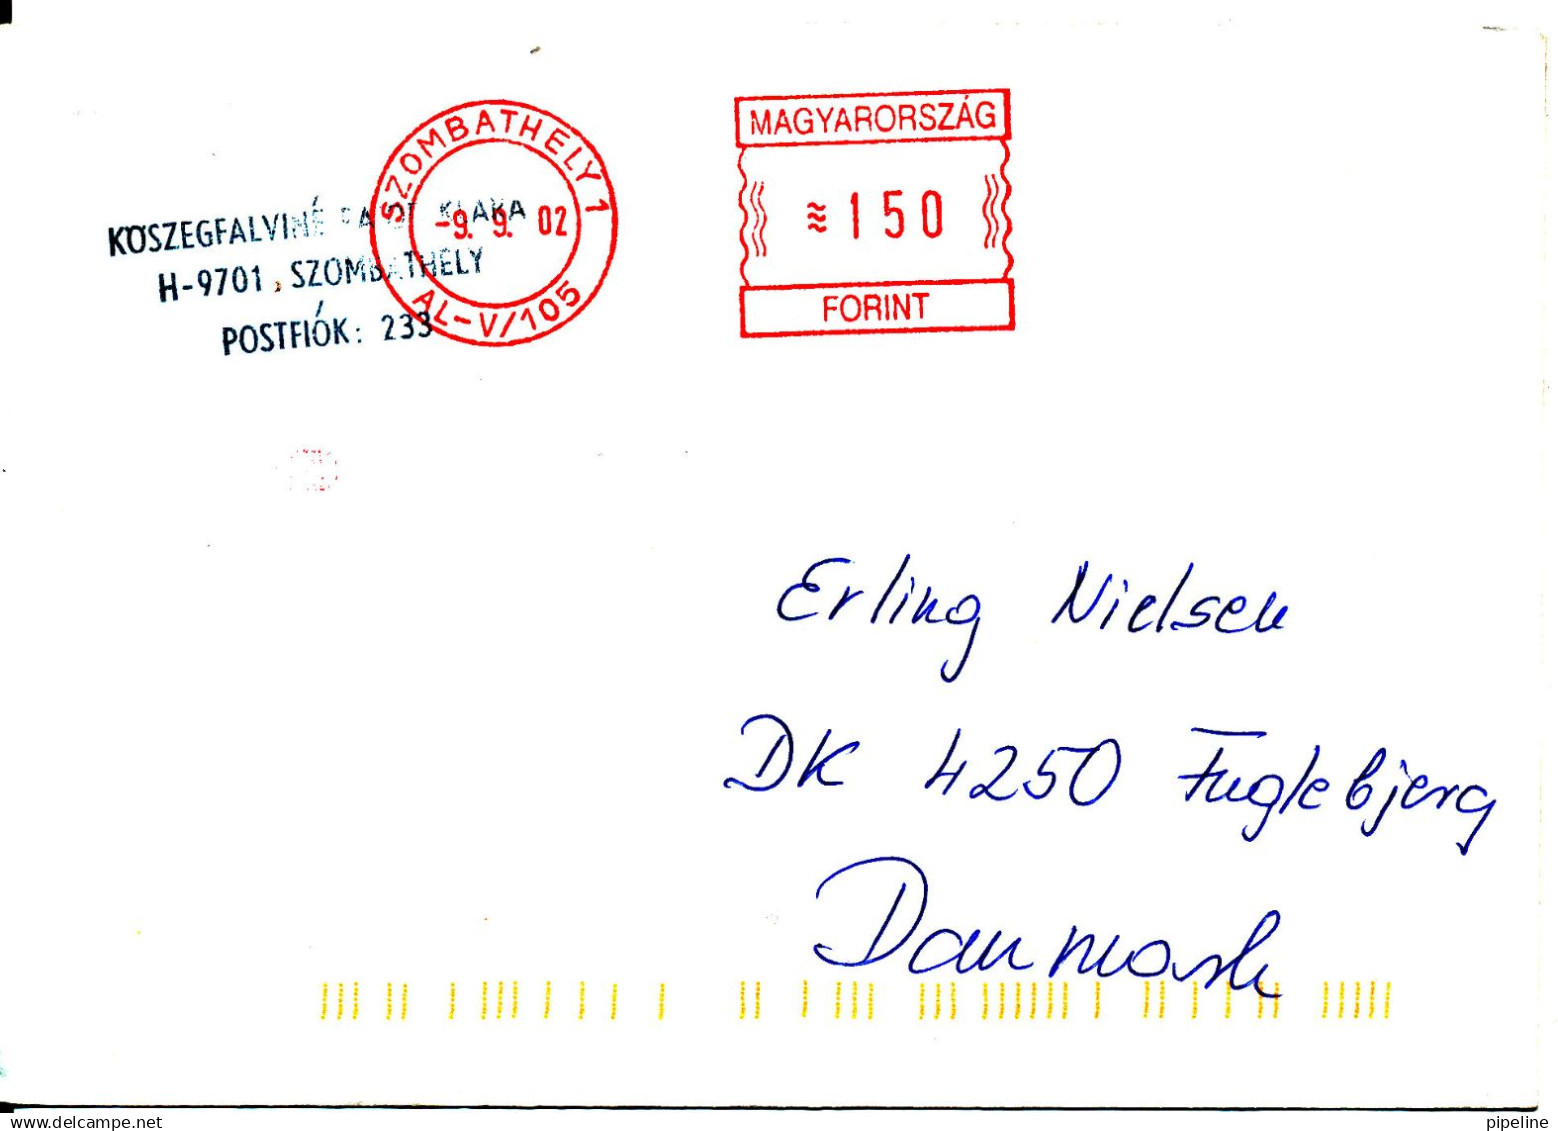 SZOMBATHELY 1
-9. 9. 02
AL-V/105
MAGYARORSZÁG
≋ 150
FORINT
KOSZEGFALVINÉ KLARA
H-9701, SZOMBATHELY
POSTFIÓK: 233
Erling Nielsen
DK 4250 Fuglebjerg
Danmark
delcampe.net
pipeline